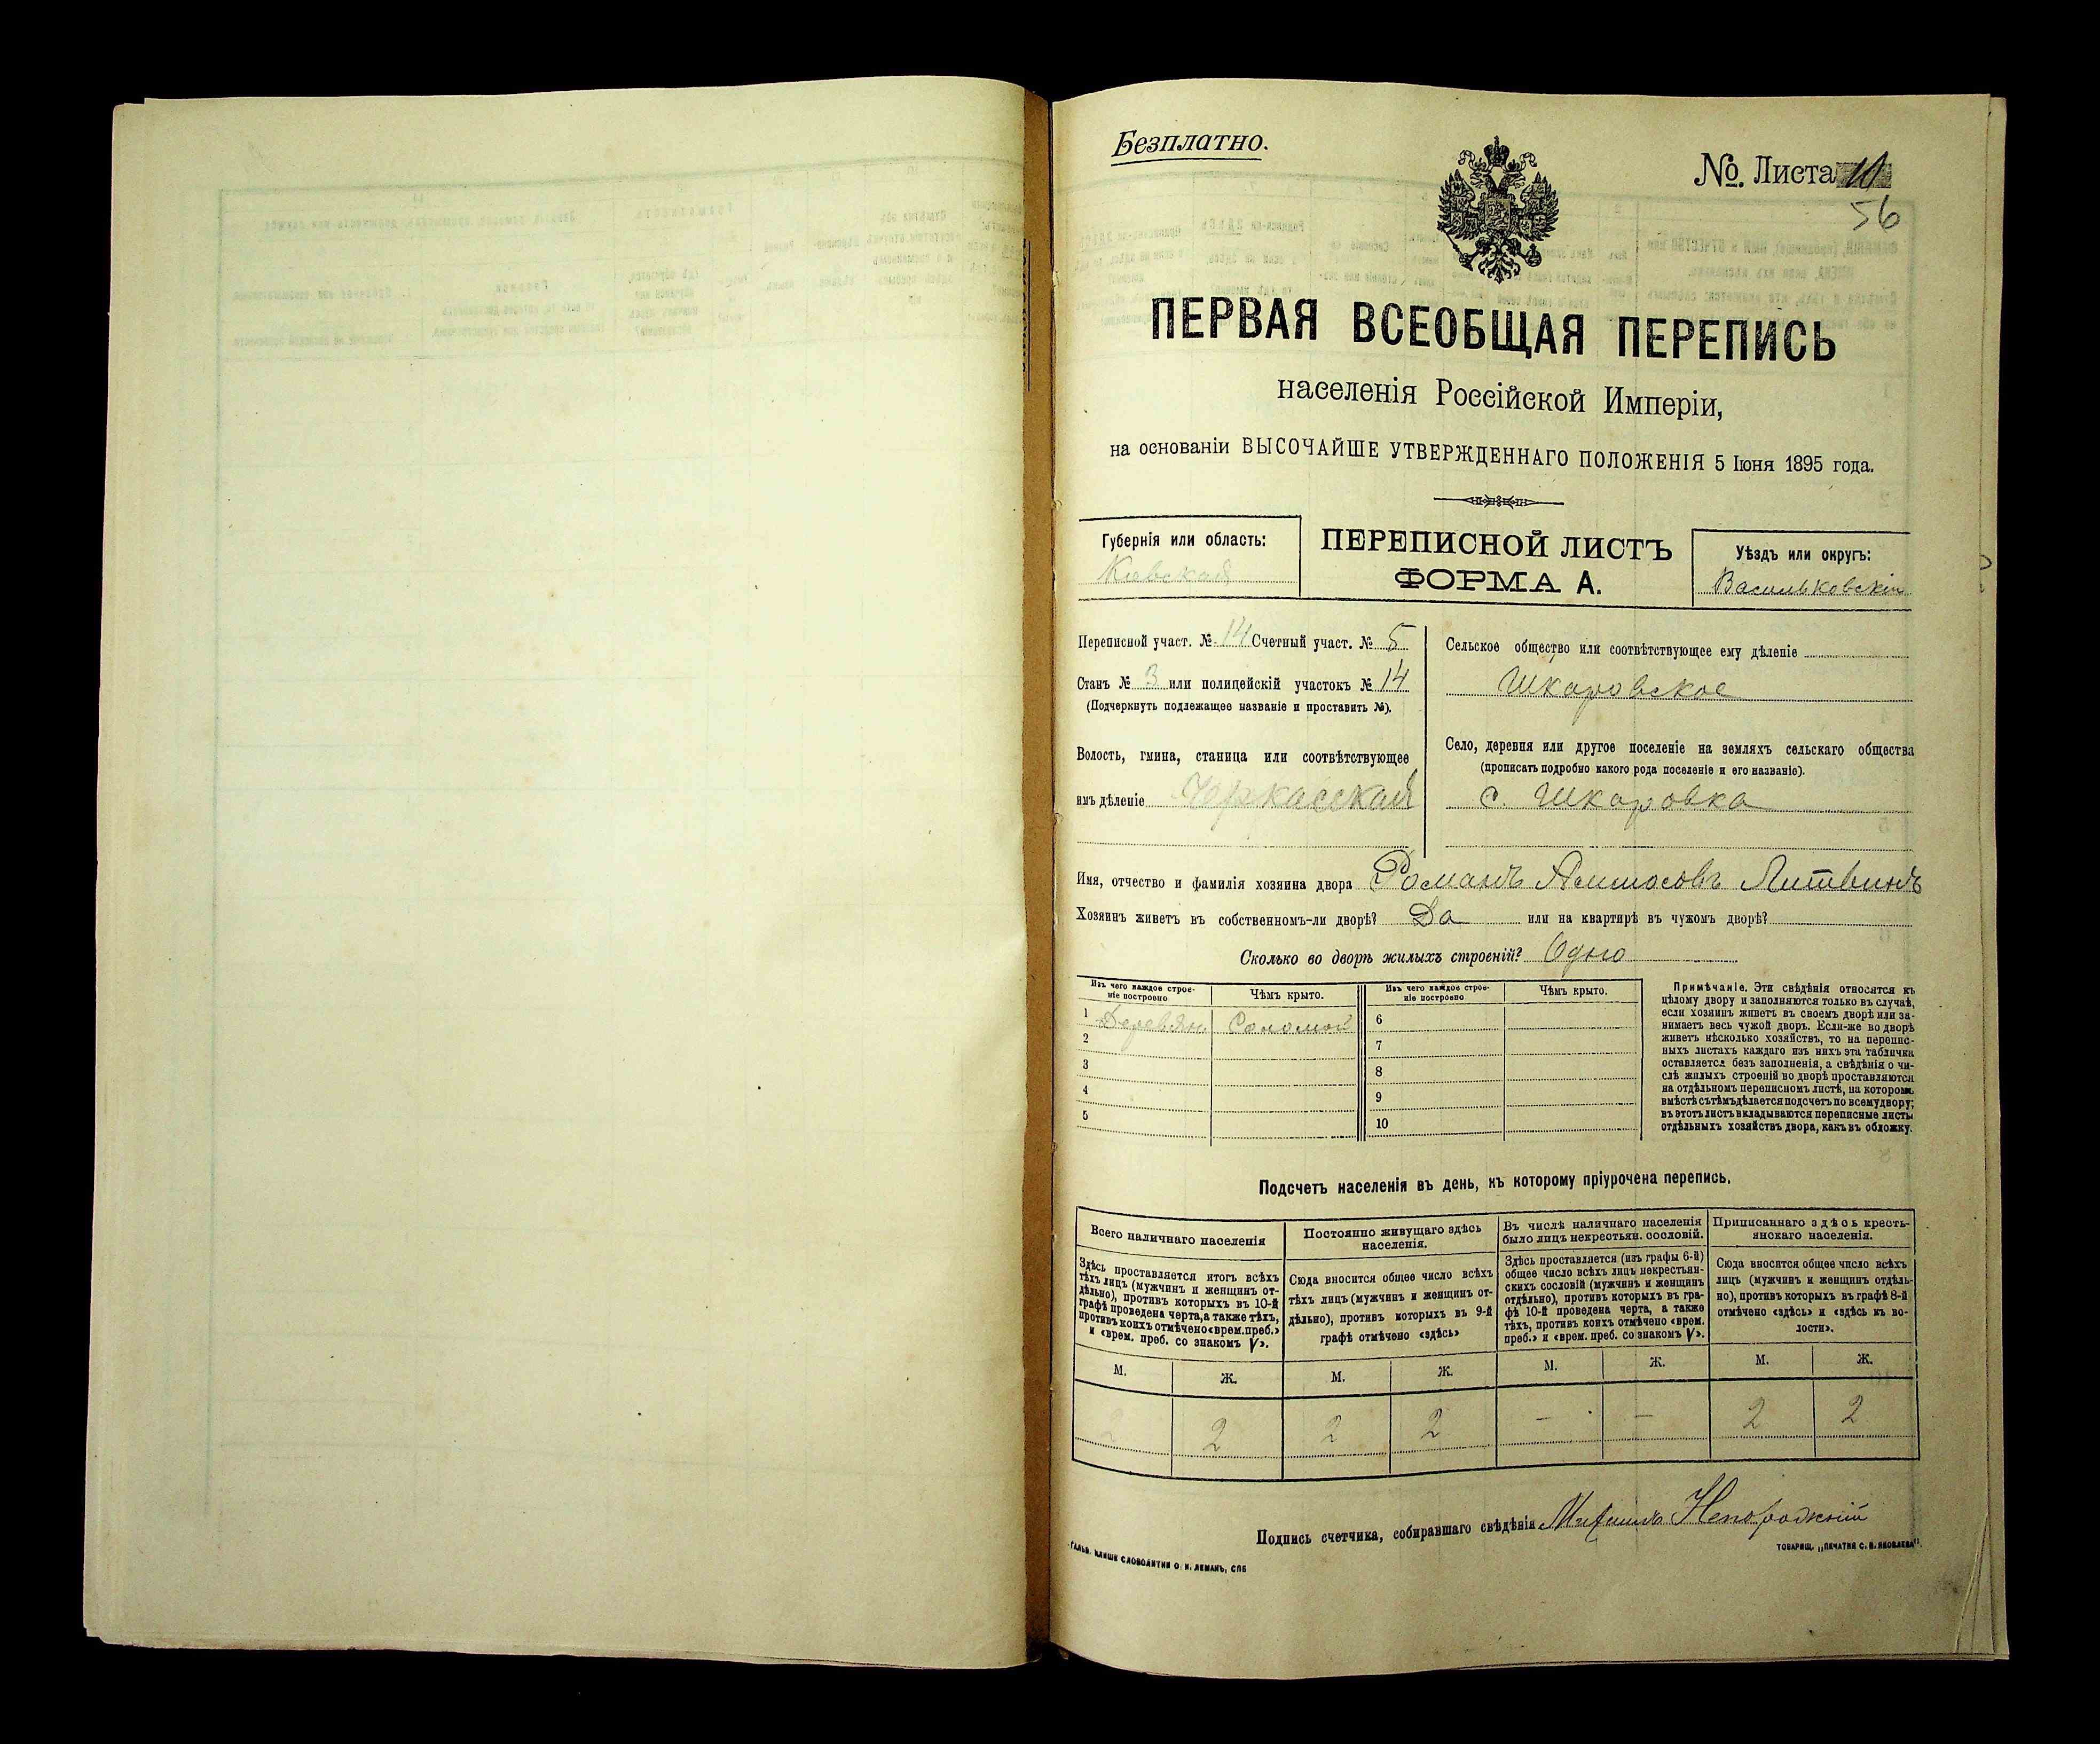 Безплатно.
№. Листа
56
ПЕРВАЯ ВСЕОБЩАЯ ПЕРЕПИСЬ
населенія Россійской Имперіи,
на основаніи ВЫСОЧАЙШЕ УТВЕРЖДЕННАГО ПОЛОЖЕНІЯ 5 Іюня 1895 года.
Губернія или область:
Кіевская
ПЕРЕПИСНОЙ ЛИСТЪ
ФОРМА А.
Уѣздъ или округъ:
Васильковскій
Переписной участ. № 14 Счетный участ. № 5
Станъ № 3 или полицейскій участокъ № 14
(Подчеркнуть подлежащее названіе и проставить №).
Волость, гмина, станица или соотвѣтствующее
имъ дѣленіе Черкасская
Сельское общество или соотвѣтствующее ему дѣленіе
Шкаровское
Село, деревня или другое поселеніе на земляхъ сельскаго общества
(прописать подробно какого рода поселеніе и его названіе).
с. Шкаровка
Имя, отчество и фамилія хозяина двора Романъ Литвинъ
Хозяинъ живетъ въ собственномъ-ли дворѣ? Да или на квартирѣ въ чужомъ дворѣ?
Сколько во дворѣ жилыхъ строеній? Одно
Изъ чего каждое строе-
ніе построено
Чѣмъ крыто.
Изъ чего каждое строе-
ніе построено
Чѣмъ крыто.
1 Деревян Соломой
2
3
4
5
6
7
8
9
10
Примѣчаніе. Эти свѣдѣнія относятся къ
цѣлому двору и заполняются только въ случаѣ,
если хозяинъ живетъ въ своемъ дворѣ или за-
нимаетъ весь чужой дворъ. Если-же во дворѣ
живетъ нѣсколько хозяйствъ, то на перепис-
ныхъ листахъ каждаго изъ нихъ эта табличка
оставляется безъ заполненія, а свѣдѣнія о чи-
слѣ жилыхъ строеній во дворѣ проставляются
на отдѣльномъ переписномъ листѣ, на которомъ
вмѣстѣ съ тѣмъ дѣлается подсчетъ по всему двору;
въ этотъ листъ вкладываются переписные листы
отдѣльныхъ хозяйствъ двора, какъ въ обложку.
Подсчетъ населенія въ день, къ которому пріурочена перепись.
Всего наличнаго населенія
Здѣсь проставляется итогъ всѣхъ
тѣхъ лицъ (мужчинъ и женщинъ от-
дѣльно), противъ которыхъ въ 10-й
графѣ проведена черта, а также тѣхъ,
противъ коихъ отмѣчено «врем. преб.»
и «врем. преб. со знакомъ V».
Постоянно живущаго здѣсь
населенія.
Сюда вносится общее число всѣхъ
тѣхъ лицъ (мужчинъ и женщинъ от-
дѣльно), противъ которыхъ въ 9-й
графѣ отмѣчено «здѣсь»
Въ числѣ наличнаго населенія
было лицъ некрестьян. сословій.
Здѣсь проставляется (изъ графы 6-й)
общее число всѣхъ лицъ некрестьян-
скихъ сословій (мужчинъ и женщинъ
отдѣльно), противъ которыхъ въ гра-
фѣ 10-й проведена черта, а также
тѣхъ, противъ коихъ отмѣчено «врем.
преб.» и «врем. преб. со знакомъ V».
Приписаннаго здѣсь кресть-
янскаго населенія.
Сюда вносятся общее число всѣхъ
лицъ (мужчинъ и женщинъ отдѣль-
но), противъ которыхъ въ графѣ 8-й
отмѣчено «здѣсь» и «здѣсь къ во-
лости».
М. Ж. М. Ж. М. Ж. М. Ж.
2 2 2 2 — — 2 2
Подпись счетчика, собиравшаго свѣдѣнія
ГАЛЬВ. КЛИШЕ СЛОВОЛИТНИ О. И. ЛЕМАНЪ, СПБ
ТОВАРИЩ. „ПЕЧАТНЯ С. П. ЯКОВЛЕВА".